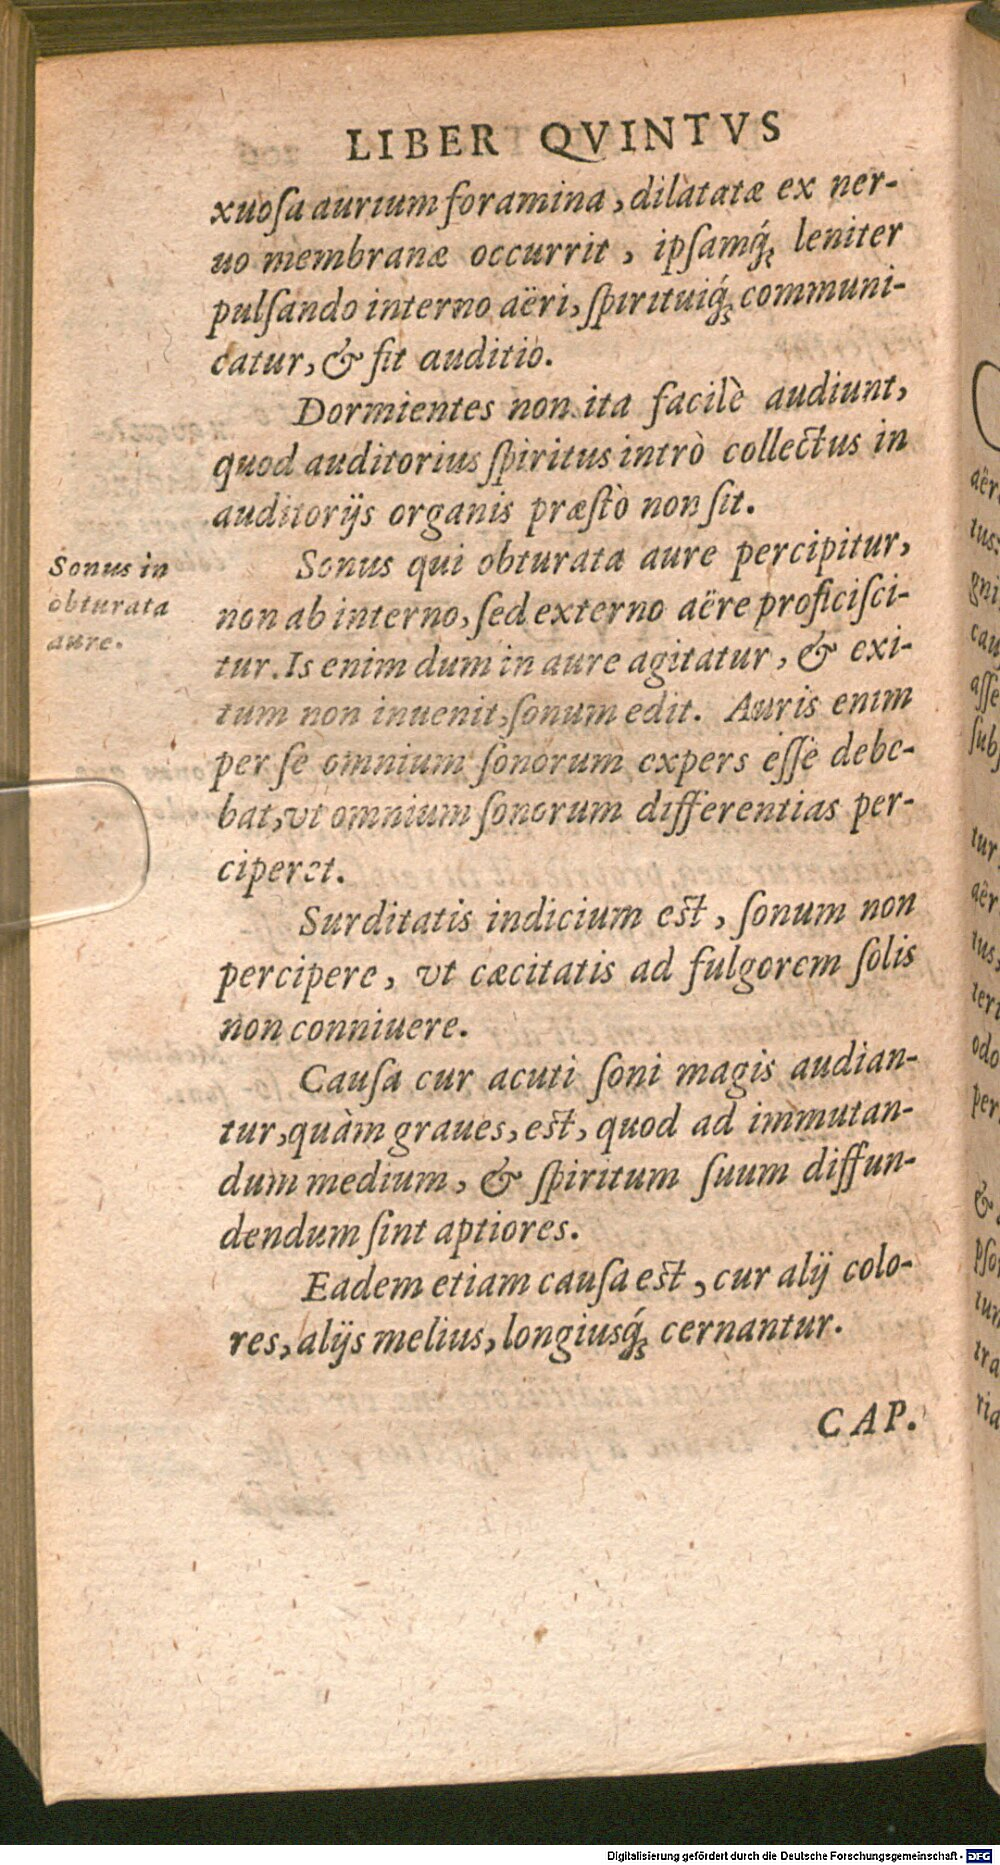 LIBER QVINTVS
xuoſa aurium foramina, dilatatæ ex ner-
uo membranæ occurrit, ipſamq́; leniter
pulſando interno aëri, ſpirituiq́; communi-
catur, & fit auditio.
Dormientes non ita facilè audiunt,
quod auditorius ſpiritus intrò collectus in
auditorijs organis præſtò non ſit.
Sonus in
obturata
aure.
Sonus qui obturata aure percipitur,
non ab interno, ſed externo aëre proficiſci-
tur. Is enim dum in aure agitatur, & exi-
tum non inuenit, ſonum edit. Auris enim
per ſe omnium ſonorum expers eſſe debe-
bat, vt omnium ſonorum differentias per-
ciperet.
Surditatis indicium est, ſonum non
percipere, vt cæcitatis ad fulgorem ſolis
non conniuere.
Cauſa cur acuti ſoni magis audian-
tur, quàm graues, est, quod ad immutan-
dum medium, & ſpiritum ſuum diffun-
dendum ſint aptiores.
Eadem etiam cauſa est, cur alij colo-
res, alijs melius, longiusq́; cernantur.
CAP.
Digitalisierung gefördert durch die Deutsche Forschungsgemeinschaft - DFG